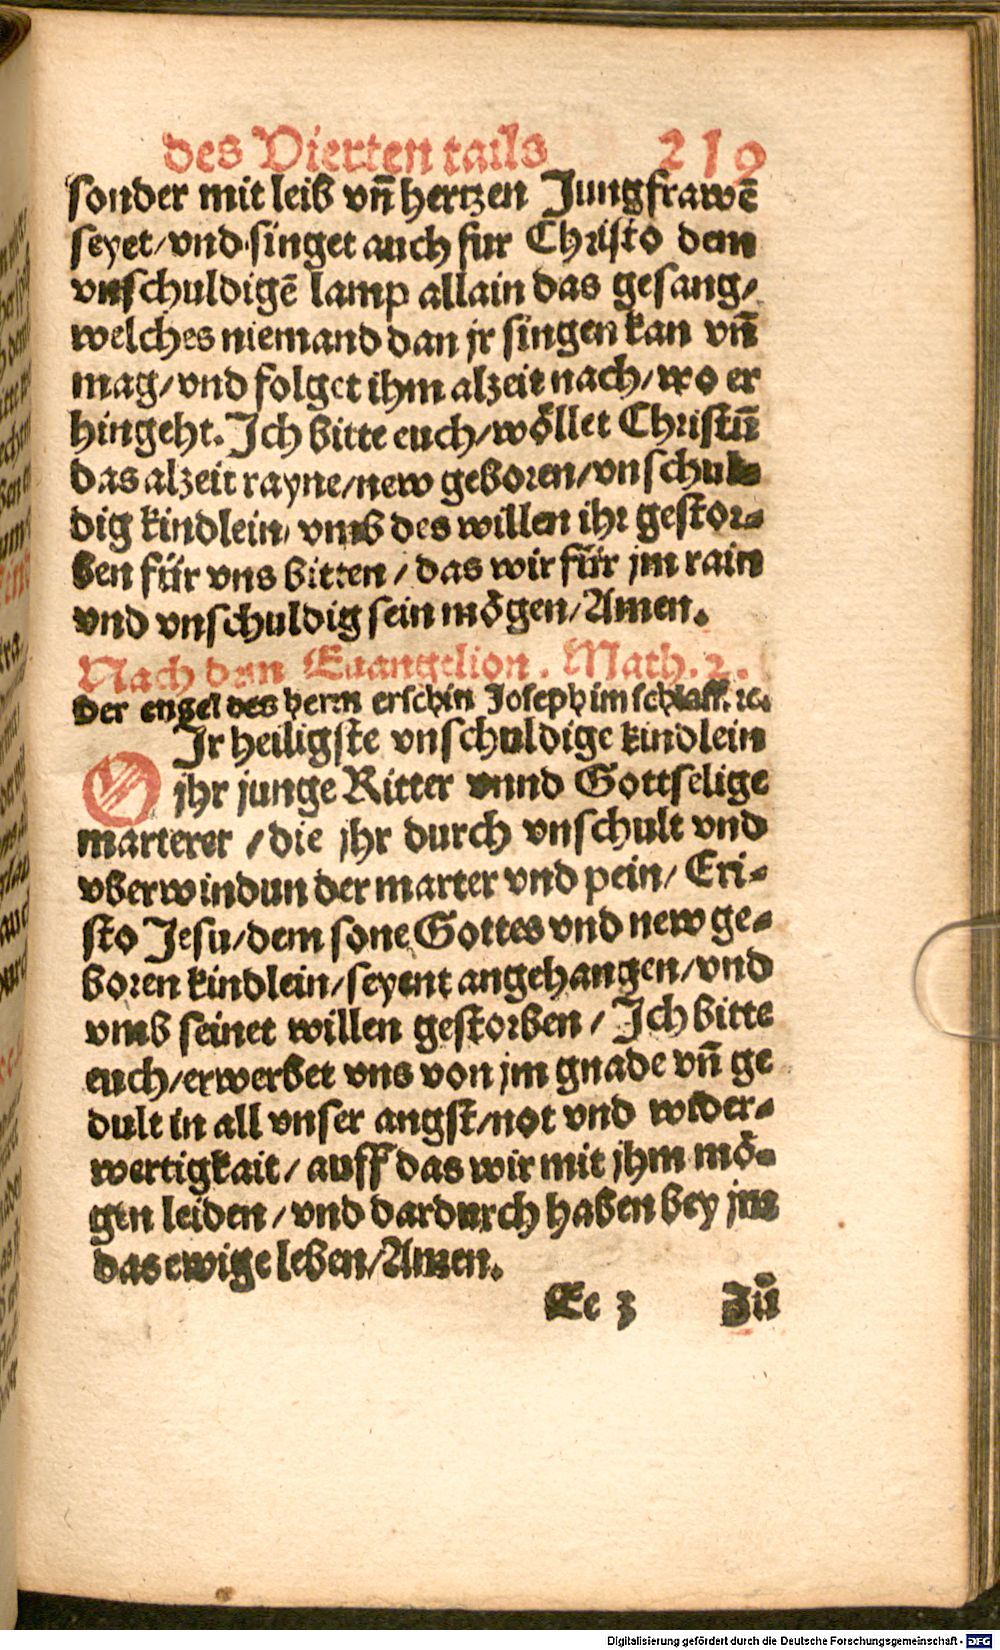 des Vierten tails 219
sonder mit leib vñ hertzen Jungfrawē
seyet/vnd singet auch fur Christo dem
vnschuldigē lamp allain das gesang/
welches niemand dan jr singen kan vñ
mag/vnd folget ihm alzeit nach/wo er
hingeht. Ich bitte euch/wöllet Christū
das alzeit rayne/new geboren/vnschul-
dig kindlein/ vmb des willen ihr gestor-
ben für vns bitten/das wir für jm rain
vnd vnschuldig sein mögen/Amen.
Nach dem Euangelion. Math. 2.
Der engel des herrn erschin Joseph im schlaff. ꝛc.
O Jr heiligste vnschuldige kindlein
jhr junge Ritter vnnd Gottselige
marterer/die jhr durch vnschult vnd
vberwindun der marter vnd pein/ Cri-
sto Jesu/dem sone Gottes vnd new ge-
boren kindlein/seyent angehangen/vnd
vmb seinet willen gestorben/ Ich bitte
euch/erwerbet vns von jm gnade vñ ge
dult in all vnser angst/not vnd wider-
wertigkait/ auff das wir mit jhm mö-
gen leiden/vnd dardurch haben bey jm
das ewige leben/Amen.
Ee 3 Zů
Digitalisierung gefördert durch die Deutsche Forschungsgemeinschaft - DFG